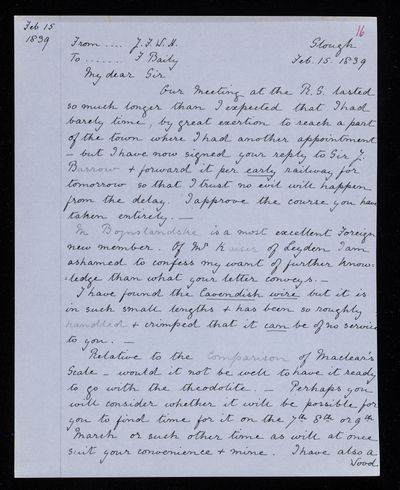 Feb 15
1839
16
From .... J. F. W. H. Slough
To ....... F Baily Feb. 15. 1839
My dear Sir
Our Meeting at the R. S. lasted
so much longer than I expected that I had
barely time, by great exertion to reach a part
of the town where I had another appointment
– but I have now signed your reply to Sir J.
Barrow & forward it per early railway for
tomorrow so that I trust no evil will happen
from the delay. I approve the course you have
taken entirely. —
is a most excellent Foreign
new member. Of Mr Kaiser of Leyden I am
ashamed to confess my want of further know-
-ledge than what your letter conveys. –
I have found the Cavendish wire but it is
in such small lengths & has been so roughly
handled & crimped that it can be of no service
to you. —
Relative to the Comparison of Maclear's
Scale – would it not be well to have it ready
to go with the theodolite. – Perhaps you
will consider whether it will be possible for
you to find time for it on the 7th 8th or 9th
March or such other time as will at once
suit your convenience & mine. I have also a
Wood